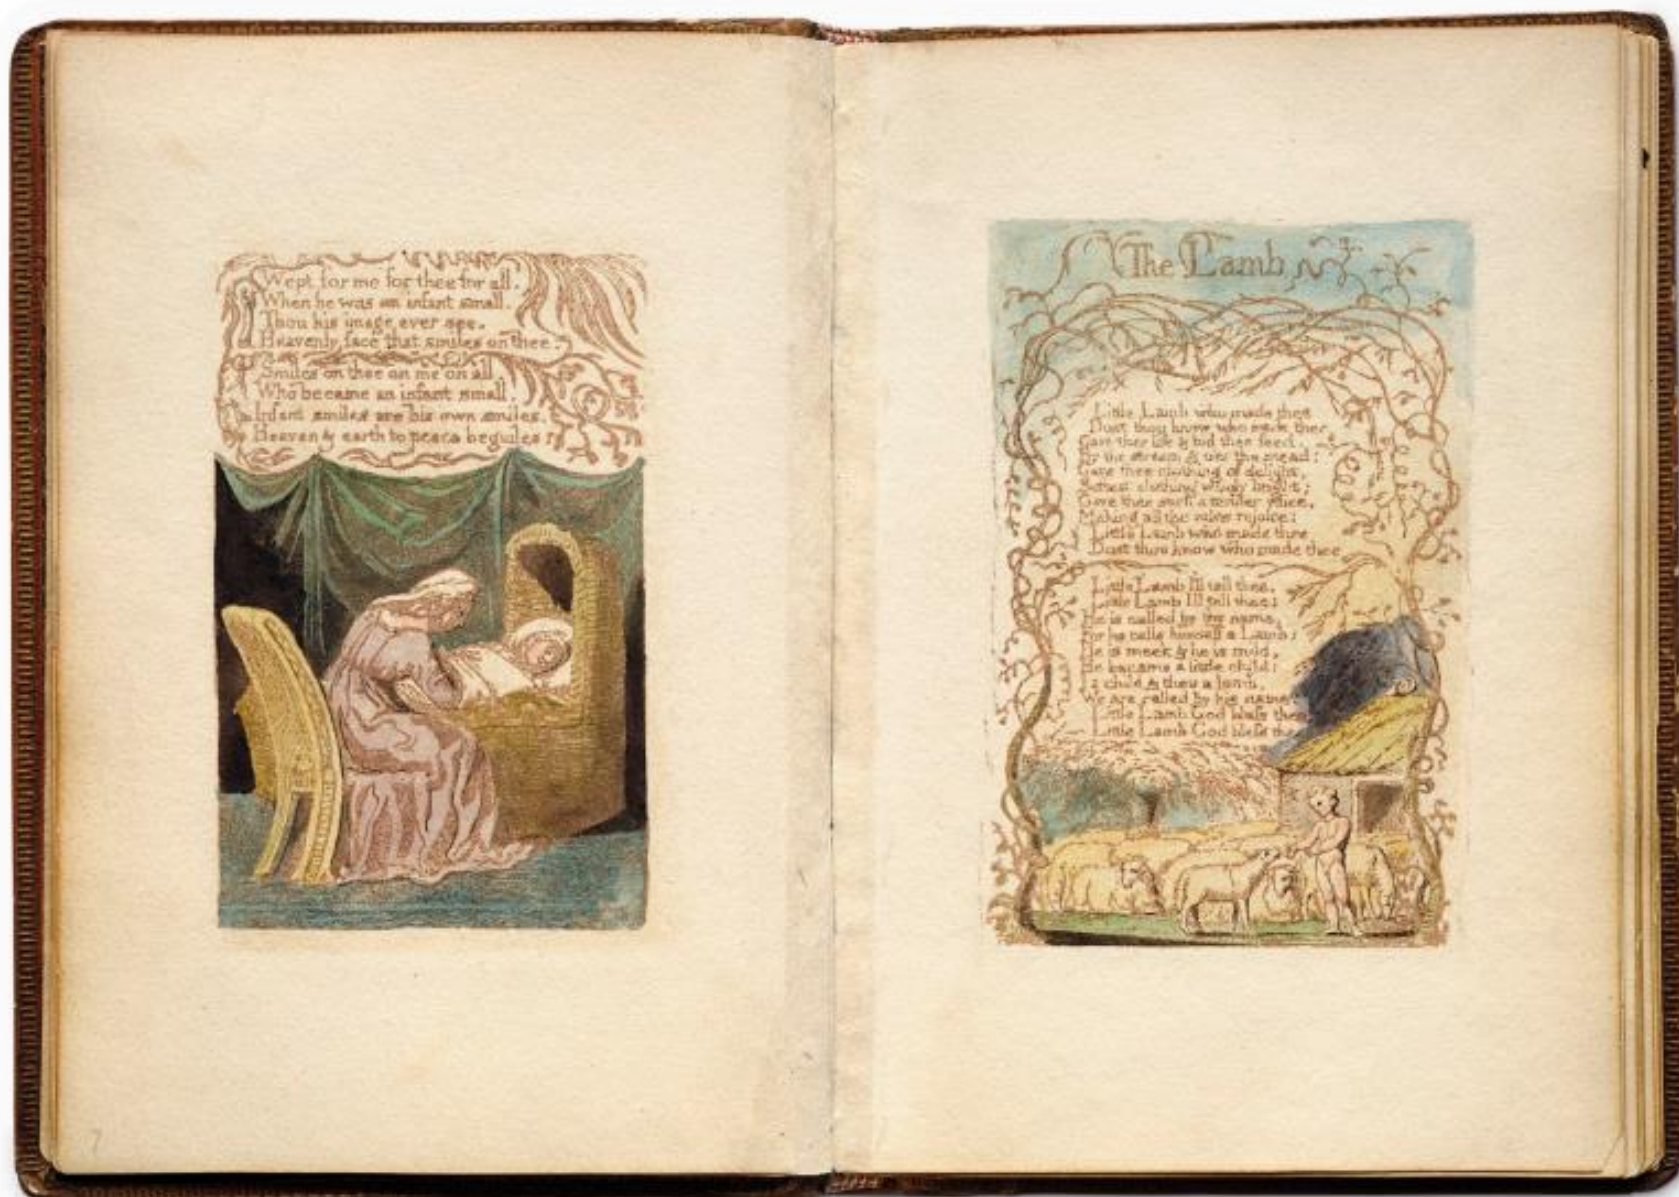 Wept for me for thee for all.
When he was an infant small.
Thou his image ever see.
Heavenly face that smiles on thee.
Smiles on thee on me on all
Who became an infant small.
Infant smiles are his own smiles.
Heaven & earth to peace beguiles.
The Lamb
Little Lamb who made thee
Dost thou know who made thee
Gave thee life & bid thee feed.
By the stream & o'er the mead;
Gave thee clothing of delight,
Softest clothing wooly bright;
Gave thee such a tender voice,
Making all the vales rejoice:
Little Lamb who made thee
Dost thou know who made thee
Little Lamb I'll tell thee,
Little Lamb I'll tell thee;
He is called by thy name,
For he calls himself a Lamb:
He is meek & he is mild,
He became a little child:
I a child & thou a lamb,
We are called by his name.
Little Lamb God bless thee
Little Lamb God bless thee